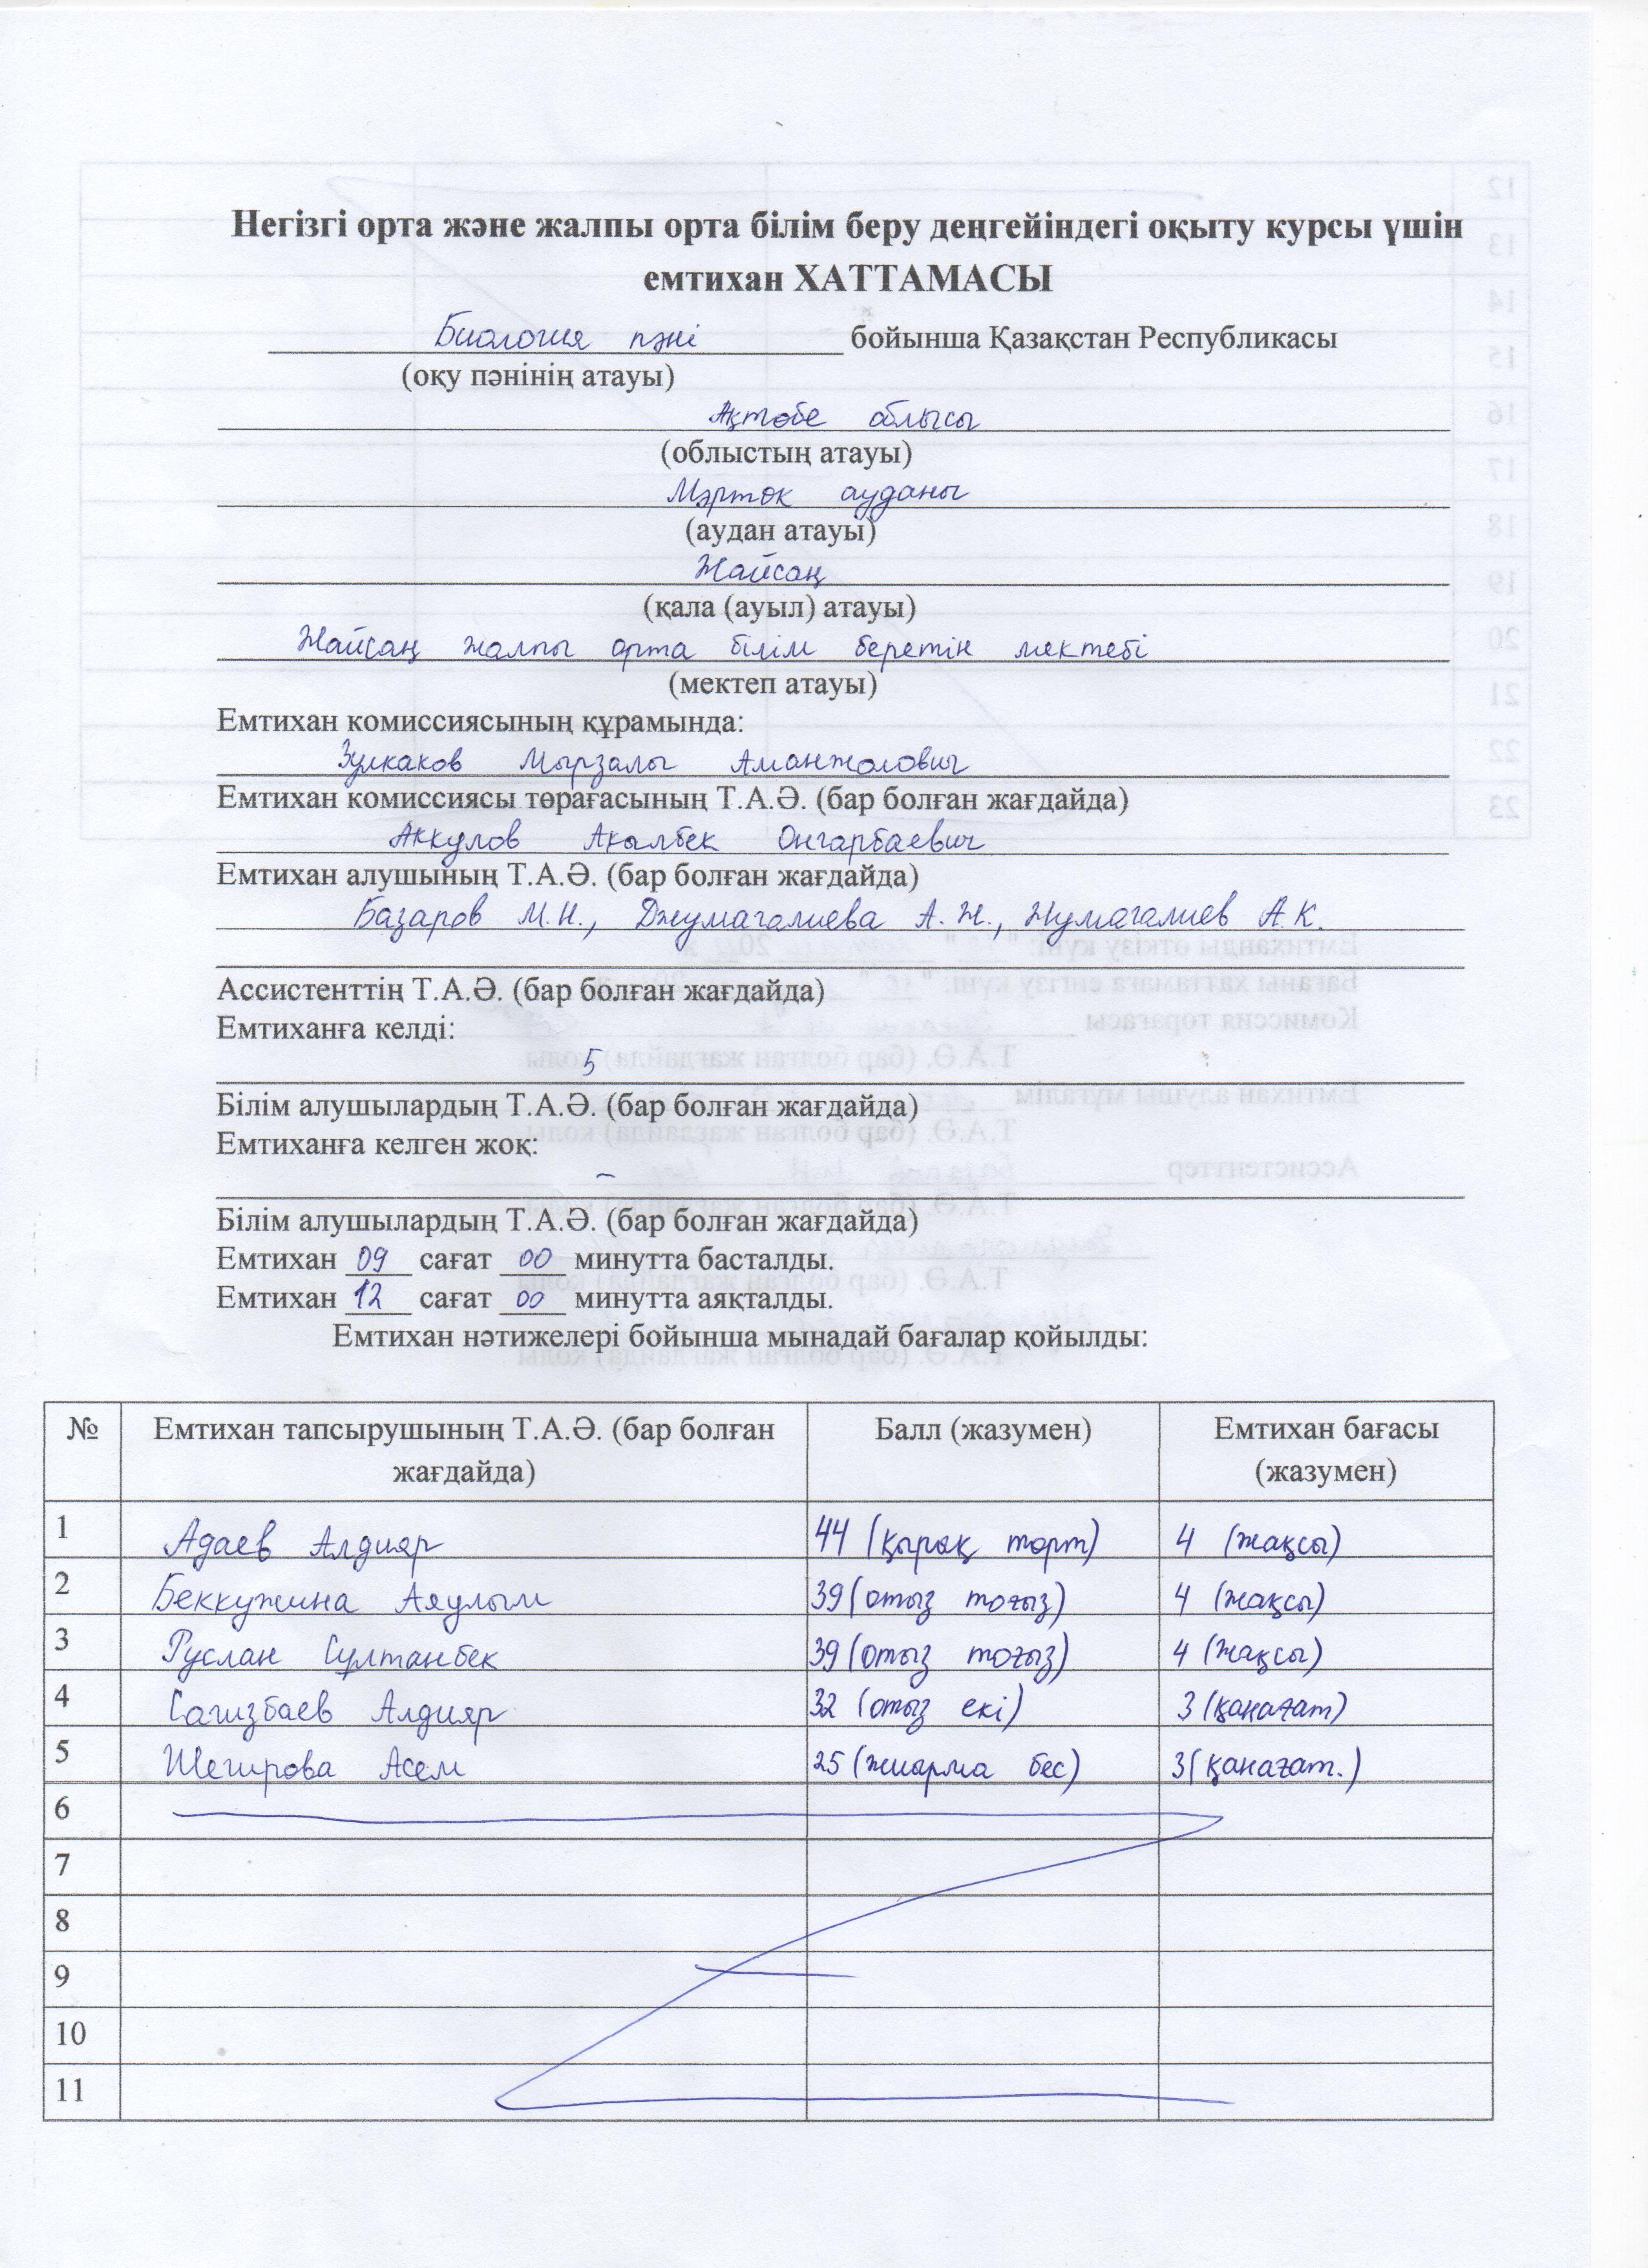 Негізгі орта және жалпы орта білім беру деңгейіндегі оқыту курсы үшін
емтихан ХАТТАМАСЫ
Биология пәні бойынша Қазақстан Республикасы
(оқу пәнінің атауы)
Ақтөбе облысы
(облыстың атауы)
Мәртөк ауданы
(аудан атауы)
Жайсаң
(қала (ауыл) атауы)
Жайсаң жалпы орта білім беретін мектебі
(мектеп атауы)
Емтихан комиссиясының құрамында:
Зулкаков Мырзалы Аманжолович
Емтихан комиссиясы төрағасының Т.А.Ә. (бар болған жағдайда)
Аккулов Акылбек Онгарбаевич
Емтихан алушының Т.А.Ә. (бар болған жағдайда)
Базаров М.Н., Джумагалиева А.Ж., Нумагалиев А.К.
Ассистенттің Т.А.Ә. (бар болған жағдайда)
Емтиханға келді:
5
Білім алушылардың Т.А.Ә. (бар болған жағдайда)
Емтиханға келген жоқ:
–
Білім алушылардың Т.А.Ә. (бар болған жағдайда)
Емтихан 09 сағат 00 минутта басталды.
Емтихан 12 сағат 00 минутта аяқталды.
Емтихан нәтижелері бойынша мынадай бағалар қойылды:
№ Емтихан тапсырушының Т.А.Ә. (бар болған жағдайда) Балл (жазумен) Емтихан бағасы (жазумен)
1 Адаев Алдияр 44 (қырық төрт) 4 (жақсы)
2 Беккужина Аяулым 39 (отыз тоғыз) 4 (жақсы)
3 Руслан Сұлтанбек 39 (отыз тоғыз) 4 (жақсы)
4 Сагизбаев Алдияр 32 (отыз екі) 3 (қанағат)
5 Шегирова Асем 25 (жиырма бес) 3 (қанағат.)
6
7
8
9
10
11